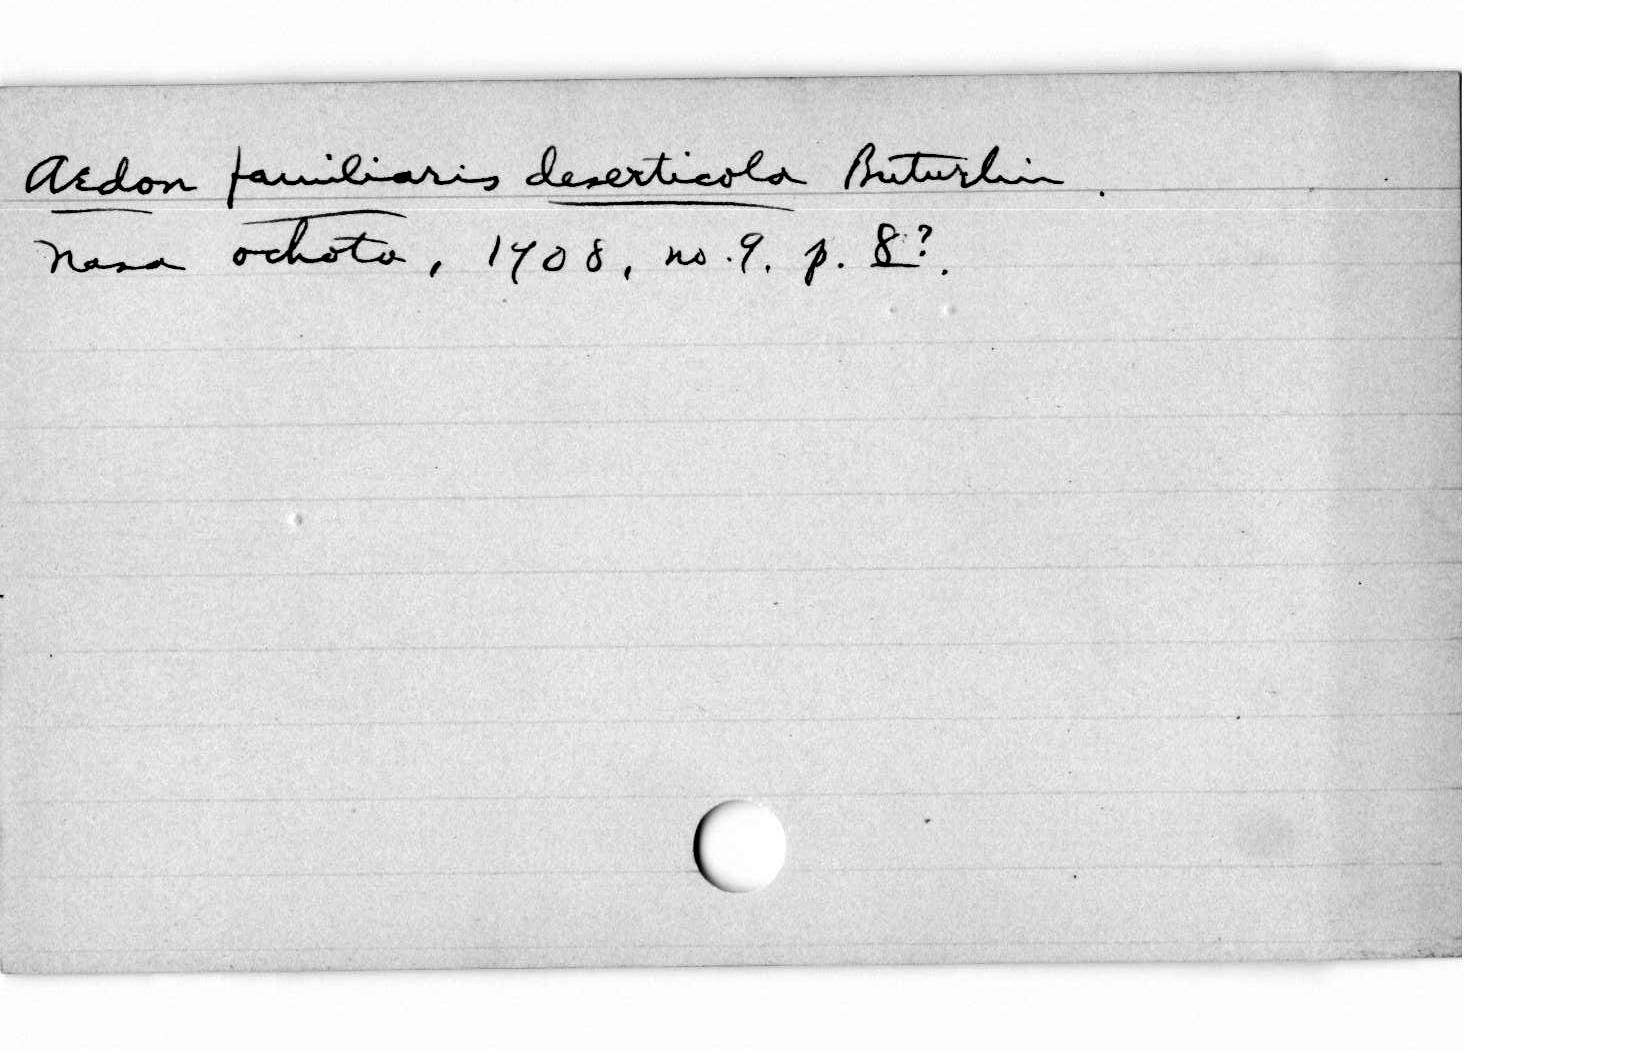 Aedon familiaris deserticola Buturlin.
Nasa ochota, 1908, no. 9. p. 8?.